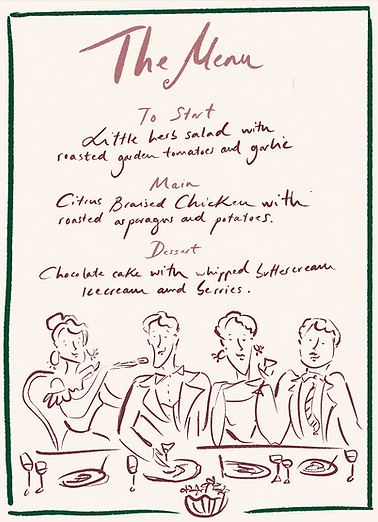 The Menu
To Start
Little herb salad with
roasted garden tomatoes and garlic
Main
Citrus Braised Chicken with
roasted asparagus and potatoes.
Dessert
Chocolate cake with whipped buttercream
Icecream and berries.